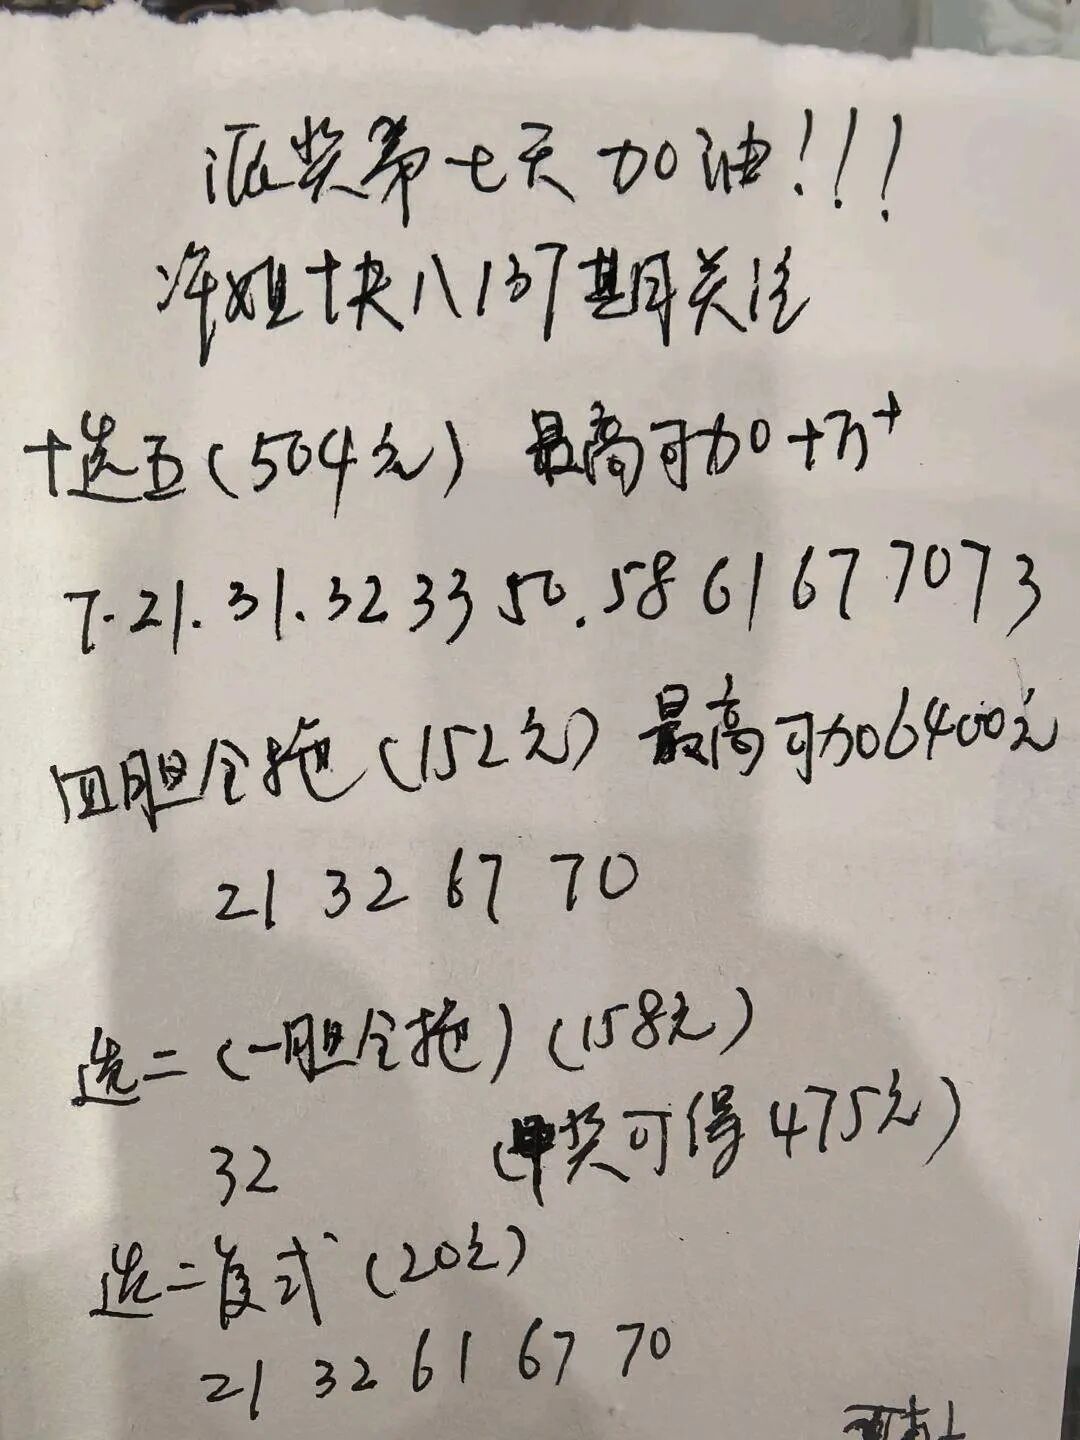 派奖第七天 加油!!!
准姐快八137期关注
十选五(504元) 最高可加十万+
7.21.31.32 33 50.58 61 67 70 73
四胆全拖(152元) 最高可加6400元
21 32 67 70
选二(一胆全拖)(158元)
32 (中奖可得475元)
选二复式(20元)
21 32 61 67 70